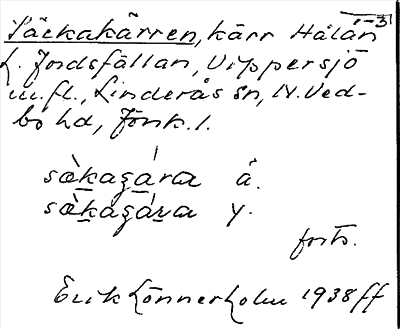 1-3
Säckakärren, kärr Hålan
L. Jordsfällan, Vippersjö
m.fl., Linderås sn, N. Ved-
bo hd, Jönk. l.
sæ̀kaga̱ra å.
sæ̀kaga̱ra y.
forts.
Erik Lönnerholm 1938 ff